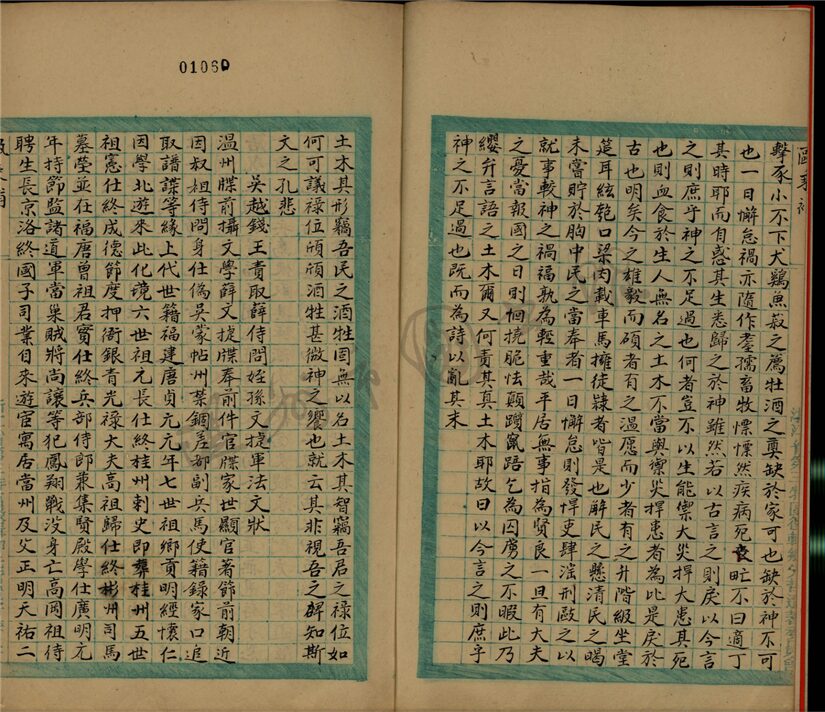 01060
甌
擊豕小不下犬鷄魚菽之薦牡酒之奠缺於家可也缺於神不可
也一日懈怠禍亦隨作耋孺畜牧慄慄然疾病死喪吐不曰適丁
其時耶而自惑其生悉歸之於神雖然若以古言之則戾以今言
之則庶乎神之不足過也何者豈不以生能禦大災捍大患其死
也則血食於生人無名之土木不當與禦災捍患者為比是戾於
古也明矣今之雄毅而碩者有之温愿而少者有之升階級坐堂
筵耳絃匏口粱肉載車馬擁徒隸者皆是也解民之懸清民之暍
未嘗貯於胸中民之當奉者一日懈怠則發悍吏肆淫刑敺之以
就事較神之禍福孰為輕重哉平居無事指為賢良一旦有大夫
之憂當報國之日則恛撓脆怯顛躓竄踣乞為囚虜之不暇此乃
纓弁言語之土木爾又何責其真土木耶故曰以今言之則庶乎
神之不足過也既而為詩以亂其末
土木其形竊吾民之酒牲固無以名土木其智竊吾君之祿位如
何可議祿位頎頎酒牲甚微神之饗也孰云其非視吾之碑知斯
文之孔悲
吳越錢王責取薛侍問姪孫文捷軍法文狀
温州牒前攝文學薛文捷牒奉前件官牒家世顯官著節前朝近
因叔祖侍問身仕偽吳蒙帖州葉錮差都副兵馬使籍録家口追
取譜諜等緣上代世籍福建唐貞元元年七世祖鄉貢明經懷仁
因學北遊來此化境六世祖元長仕終桂州刺史即葬桂州五世
祖憲仕終成德節度押衙銀青光禄大夫高祖歸仕終彬州司馬
墓塋並在福唐曾祖君實仕終兵部侍郎兼集賢殿學仕廣明元
年持節監諸道軍當巢賊將尚讓等犯鳳翔戰没身亡高岡祖侍
聘生長京洛終國子司業自來遊宦寓居當州及父正明天祐二